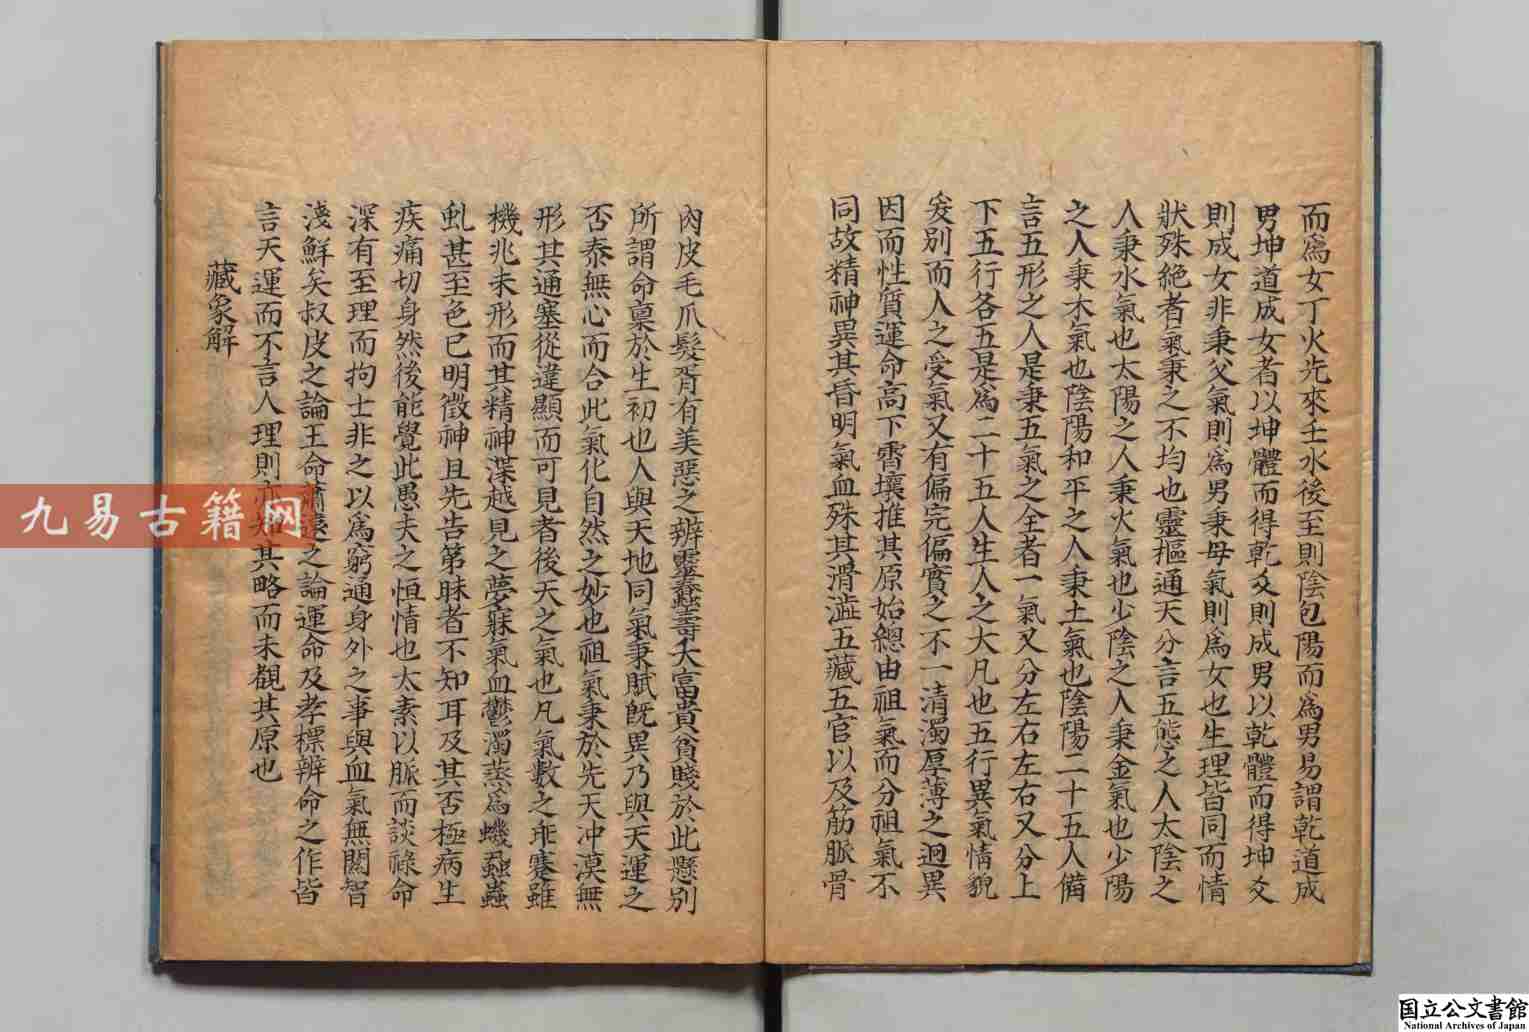 而爲女丁火先來壬水後至則陰包陽而爲男易謂乾道成
男坤道成女者以坤體而得乾爻則成男以乾體而得坤爻
則成女非秉父氣則爲男秉母氣則爲女也生理皆同而情
狀殊絶者氣秉之不均也靈樞通天分言五態之人太陰之
人秉水氣也太陽之人秉火氣也少陰之人秉金氣也少陽
之人秉木氣也陰陽和平之人秉土氣也陰陽二十五人備
言五形之人是秉五氣之全者一氣又分左右左右又分上
下五行各五是爲二十五人生人之大凡也五行異氣情貌
爰別而人之受氣又有偏完偏實之不一清濁厚薄之迥異
因而性質運命高下霄壤推其原始總由祖氣而分祖氣不
同故精神異其昏明氣血殊其滑澁五藏五官以及筋脈骨
肉皮毛爪髮胥有美惡之辨靈蠢壽夭富貴貧賤於此懸別
所謂命禀於生初也人與天地同氣秉賦旣異乃與天運之
否泰無心而合此氣化自然之妙也祖氣秉於先天冲漠無
形其通塞從違顯而可見者後天之氣也凡氣數之乖蹇雖
機兆未形而其精神渫越見之夢寐氣血鬱濁蒸爲蟣蝨蟲
虬甚至色已明徵神且先告第昧者不知耳及其否極病生
疾痛切身然後能覺此愚夫之恒情也太素以脈而談祿命
深有至理而拘士非之以爲窮通身外之事與血氣無關智
淺鮮矣叔皮之論王命蕭遠之論運命及孝標辨命之作皆
言天運而不言人理則亦知其略而未觀其原也
藏象解
九易古籍网
国立公文書館
National Archives of Japan